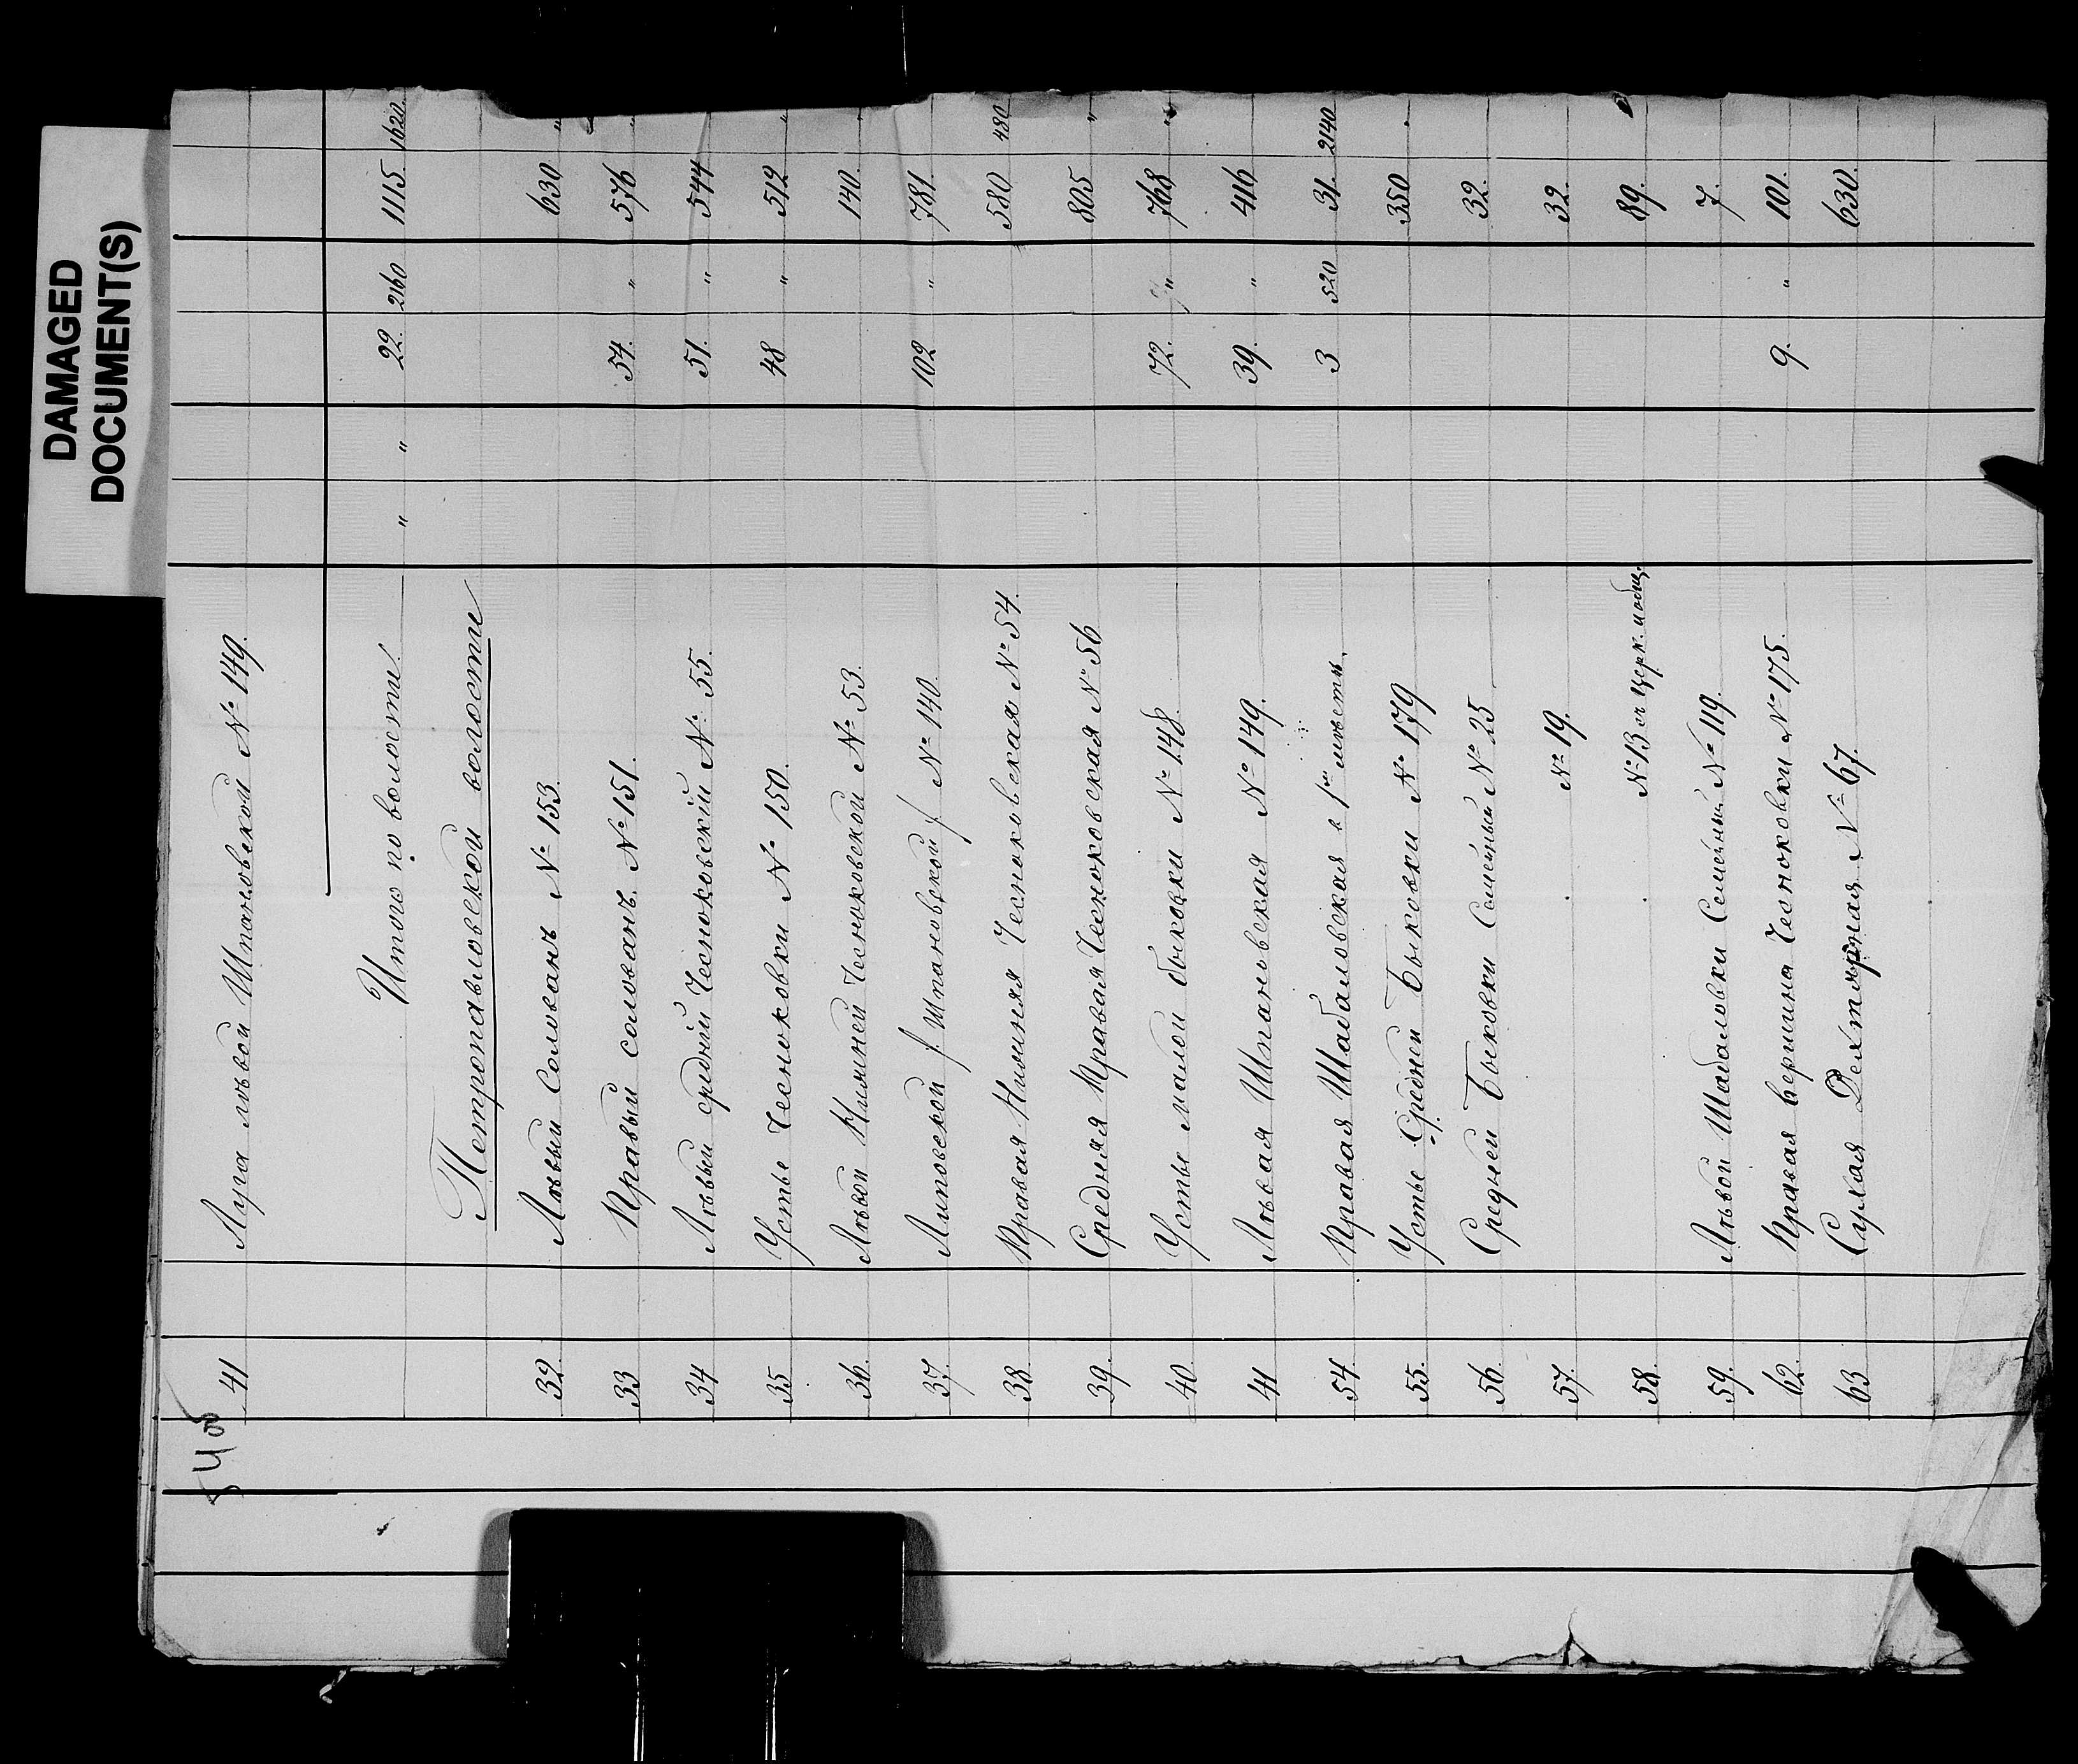 DAMAGED
DOCUMENT(S)
41 Луга лѣвой Шпановской № 149.
Итого по волости. " " 22. 2160 1115. 1620.
Петропавловской волости
32. Лѣвый Солованъ № 153. 630 "
33 Правый солованъ № 151. 54. " 576 "
34 Лѣвый средній Чесноковскій № 55. 51. " 544
35 Устье Чесноковки № 150. 48 " 512 "
36. Лѣвой Нижней Чесноковской № 53. 140. "
37. Липовской / Шпановской / № 140. 102 " 781.
38. Правая Нижняя Чесноковская № 54. 580 480
39. Средняя Правая Чесноковская № 56 805 "
40 Устье малой быковки № 148. 72. " 768 "
41 Лѣвая Шпановская № 149. 39. " 416
54 Правая Шабаловская 3 520 31. 2140
55. Устье Средней Быковки № 179 350
56. Средней Быковки Семейный № 25 32.
57. № 19. 32.
58. № 13 89.
59. Лѣвой Шабаловки Семейный № 119. 7.
62. Правая вершина Чесноковки № 175. 9. " 101.
63 Сухая Дехтярная № 67. 630.